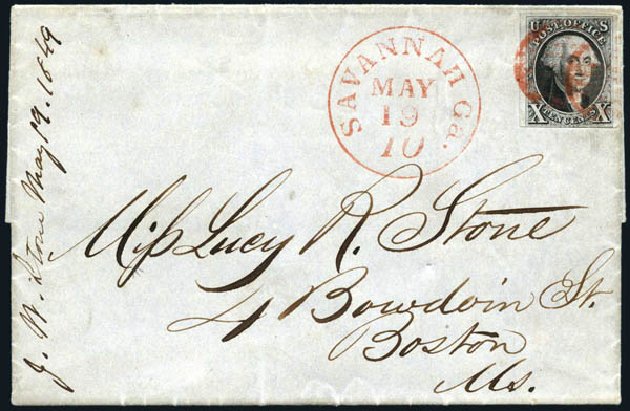 J. W. Stone May 19. 1849
SAVANNAH Ga.
MAY
19
10
U S
POST OFFICE
X TEN CENTS X
Miss Lucy R. Stone
4 Bowdoin St.
Boston
Ms.